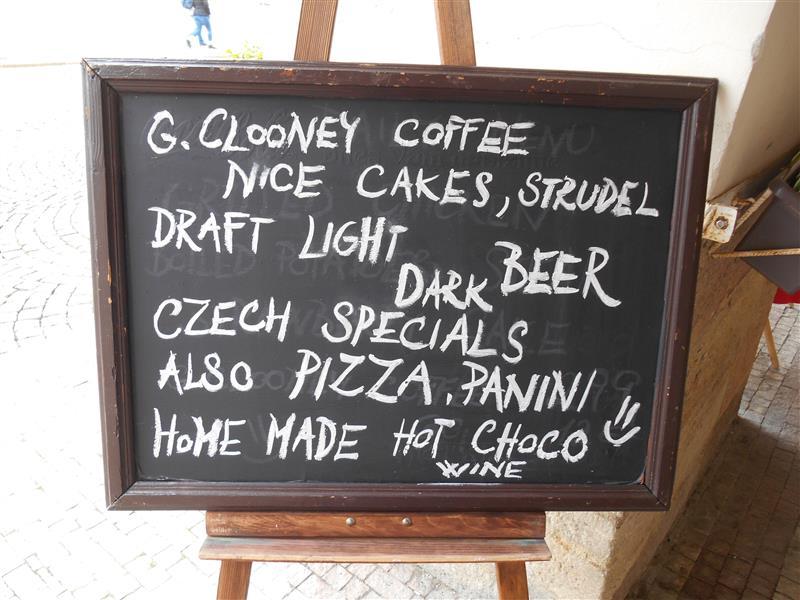 G. CLOONEY COFFEE
NICE CAKES, STRUDEL
DRAFT LIGHT
DARK BEER
CZECH SPECIALS
ALSO PIZZA, PANINI
HOME MADE HOT CHOCO
WINE